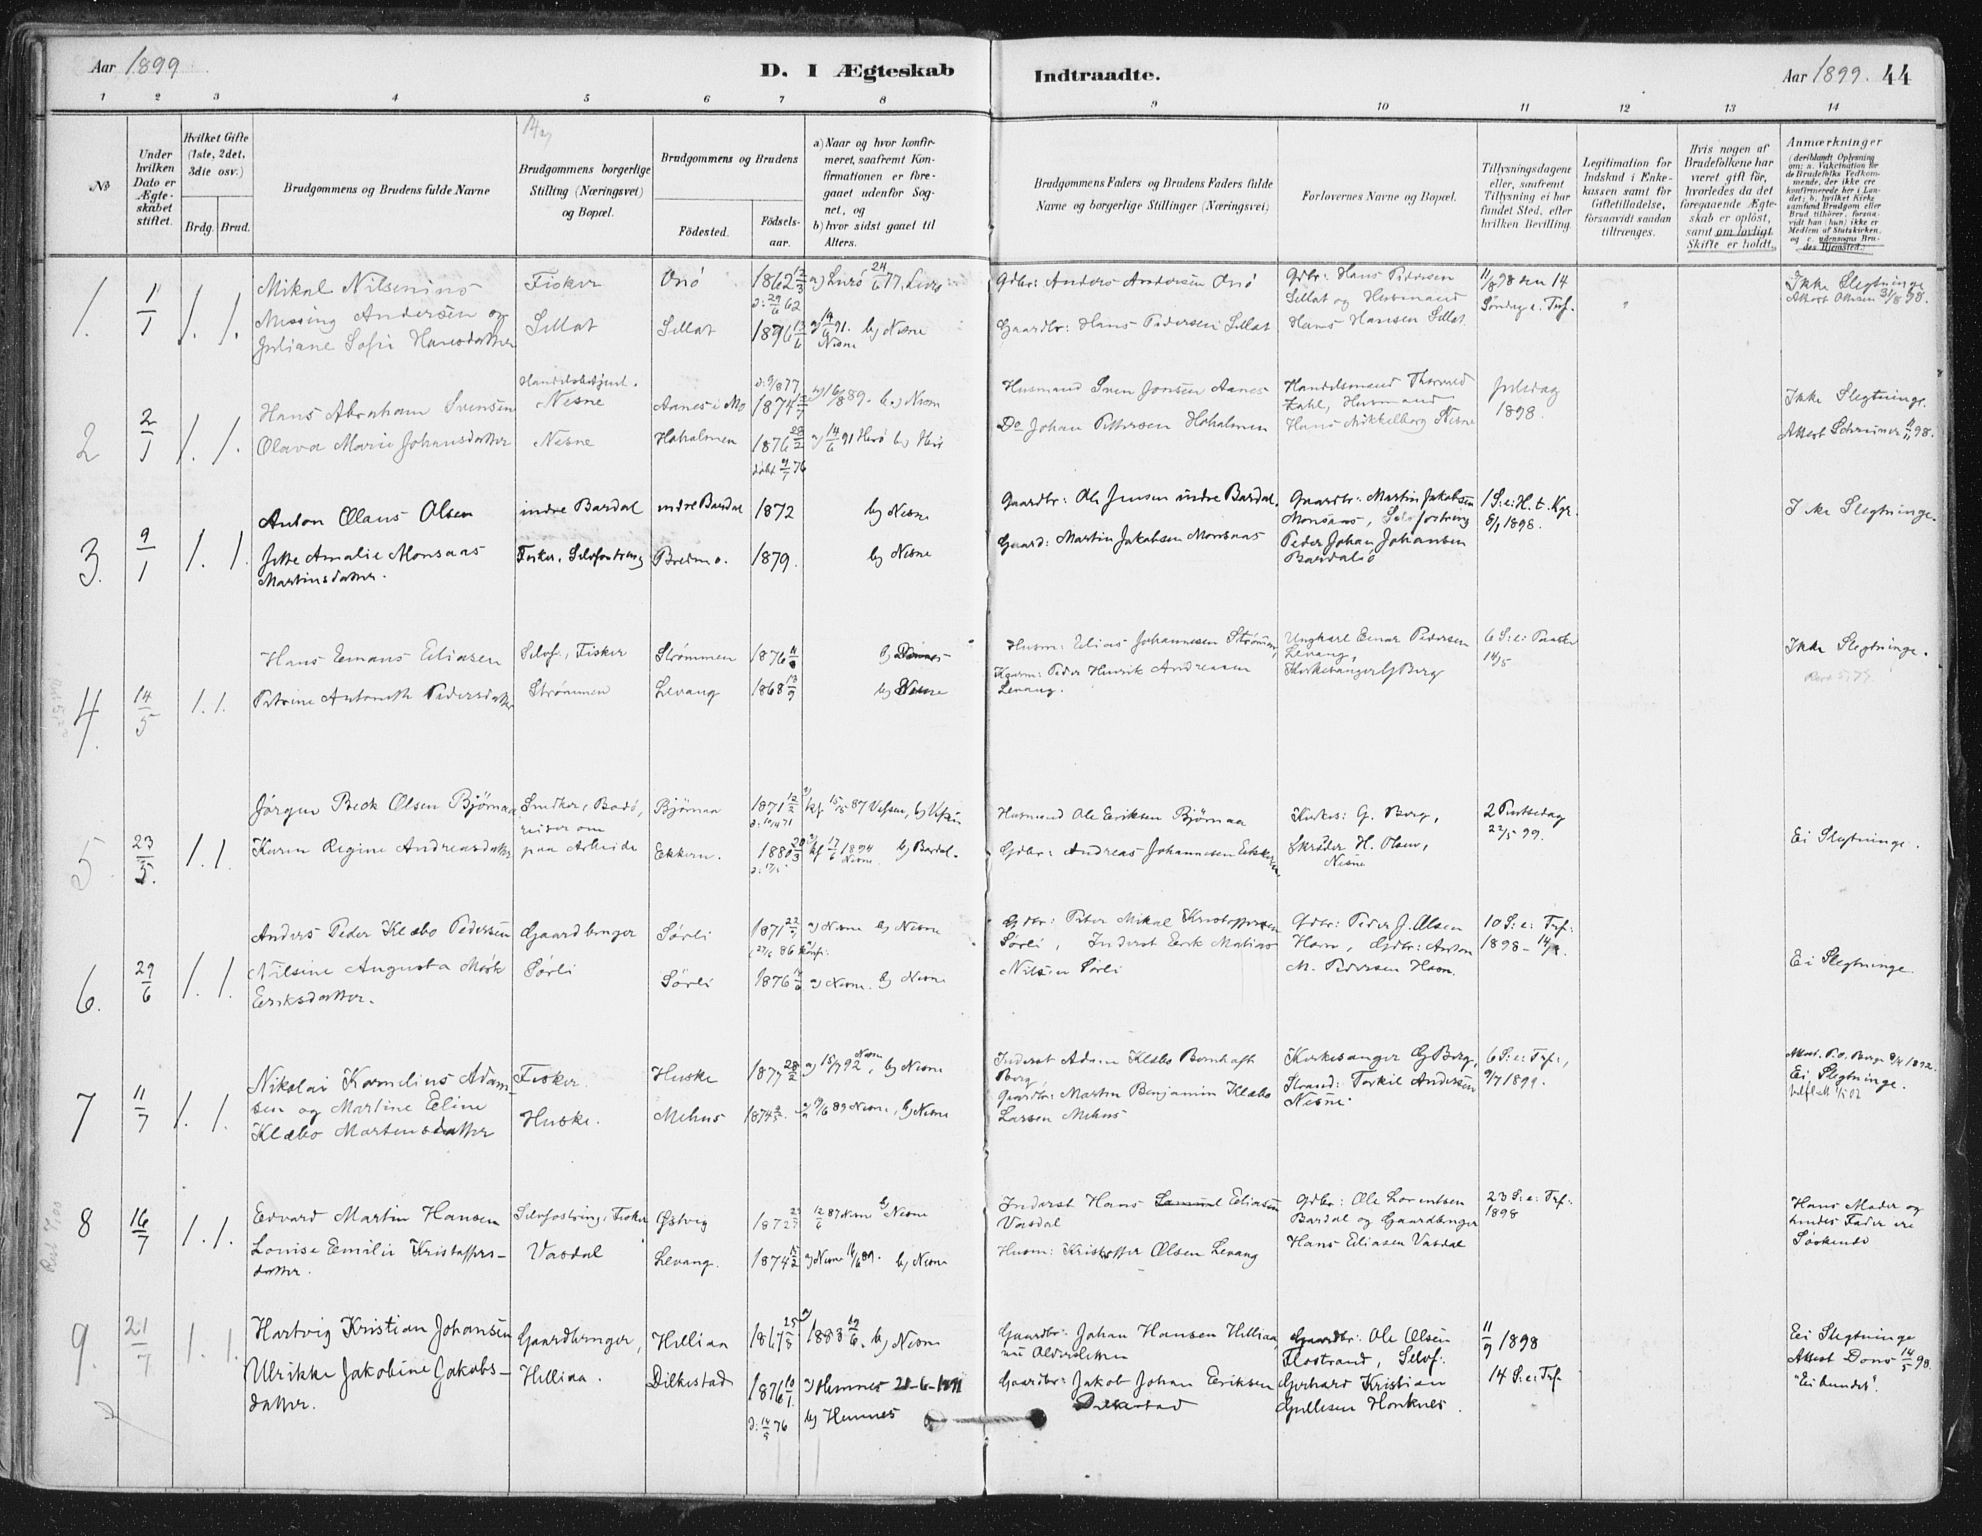 Aar 1899
D. I Ægteskab
Indtraadte.
Aar 1899. 44
1 2 3 4 5 6 7 8 9 10 11 12 13 14
No
Under hvilken Dato er Ægteskabet stiftet.
Hvilket Gifte (1ste, 2det, 3die osv.)
Brdg. Brud.
Brudgommens og Brudens fulde Navne
Brudgommens borgerlige Stilling (Næringsvei) og Bopæl.
Brudgommens og Brudens
Fødested.
Fødselsaar.
a) Naar og hvor konfirmeret, saafremt Konfirmationen er foregaaet udenfor Sognet, og
b) hvor sidst gaaet til Alters.
Brudgommens Faders og Brudens Faders fulde Navne og borgerlige Stillinger (Næringsvei)
Forlovernes Navne og Bopæl.
Tillysningsdagene eller, saafremt Tillysning ei har fundet Sted, efter hvilken Bevilling.
Legitimation for Indskud i Enkekassen samt for Giftetilladelse, forsaavidt saadan tiltrænges.
Hvis nogen af Brudefolkene har været gift før, hvorledes da det foregaaende Ægteskab er opløst, samt om lovligt Skifte er holdt.
Anmærkninger
(deriblandt Oplysning om: a. Vakcination for de Brudefolks Vedkommende, der ikke ere konfirmerede her i Landet; b. hvilket Kirkesamfund Brudgom eller Brud tilhører, forsaavidt han (hun) ikke er Medlem af Statskirken, og c. udensogns Brudes Hjemsted.
1. 1/1 1. 1.
Mikal Nilsenius
Missing Andersen og
Juliane Sofie Hansdatter
Fisker
Sellat
Onø
Sellat
1862 12/3
1876 13/6
a) Lurø 24/6 77, Lurø
a) 14/6 91. b) Nesne
Nesne
Gdbr: Anders Andersen Onø
Gaardbr: Hans Pedersen Sellat
Gdbr: Hans Pedersen
Sellat og Husmand
Hans Hansen Sellat
11/8 98 den 14
Søndag e. Tref.
Ikke Slegtninge
2 2/1 1. 1.
Hans Abraham Svensen
Olava Marie Johansdatter
Handelsbetjent.
Nesne
Nesne
Aanes i Mo
Hohalmen
1874
1876 28/2
døbt 9/7 76
a) 16/8 89. b) Nesne
a) 14/6 91 Herø b) Herø
Husmand Sven Jonsen Aanes
Do Johan Pettersen Hohalmen
Handelsmand Thorvald
Zahl, Husmand
Hans Mikkelborg Nesne
Juledag
1898.
Ikke Slegtninge.
3. 9/1 1. 1.
Anton Olaus Olsen
Jette Amalie Monsaas
Martinsdatter.
indre Bardal
Fisker, Selvfostring
indre Bardal
Bredmo.
1872
1879.
b) Nesne
b) Nesne
Gaardbr: Ole Jensen indre Bardal.
Gaard: Martin Jakobsen Monsaas
Gaardbr: Martin Jakobsen
Monsaas, Selvfostring
Peder Johan Johansen
Bardalsø
1 S: e: H. t. Kgr.
8/1 1898.
Ikke Slegtninge.
4. 14/5 1. 1.
Hans Emans Eliasen
Petrine Antonette Pedersdatter
Selvf:, Fisker
Strømmen
Strømmen
Levang
1876
1868 13/9
b) Nesne
b) Nesne
Husm: Elias Johannesen Strømmen
Husm: Peder Henrik Andreasen
Levang.
Ungkarl Einar Pedersen
Levang,
Kirkesanger G Berg
6 S: e: Paaske
14/5
Ikke Slegtninge.
5. 23/5. 1. 1.
Jørgen Beck Olsen Bjørnaa
Karen Regine Andreasdatter
Snedker, Bodø,
reiser om
paa Arbeide
Bjørnaa
Ekkern.
1871 12/2
1880 20/3
a) kf 15/5 87 Vefsen, b) Vefsen
a) kf 17/6 1894 b) Bardal.
Nesne
Husmand Ole Eriksen Bjørnaa
Gdbr: Andreas Johannesen Ekkern.
Kirkes: G. Berg,
Skræder H. Olsen,
Nesne
2 Pintsedag
22/5 99.
Ei Slegtninge.
6. 29/6 1. 1.
Anders Peder Klæbo Pedersen
Nilsine Augusta Mørk
Eriksdatter.
Gaardbruger
Sørli
Sørli
Sørli
1871
1876
a) Nesne b) Nesne
a) Nesne. b) Nesne
Gdbr: Peter Mikal Kristoffersen
Sørli, Inderst Erik Matias
Nilsen Sørli
Gdbr: Peder J. Olsen
Havn, Gdbr: Anton
M. Pedersen Havn.
10 S: e: Tref:
1898 -
Ei Slegtninge.
7 11/7 1. 1.
Nikolai Kornelius Adamsen og Martine Eline
Klæbo Martensdatter
Fisker.
Huske.
Huske
Mehus
1877 28/2
1874
a) 15/7 92 Nesne, b) Nesne
a) 9/6 89 Nesne, b) Nesne
Inderst Adam Klæbo Bernhoft
Berg
Gaardbr: Martin Benjamin Klæbo
Larsen Mehus
Kirkesanger G Berg,
Strand: Torkil Andersen
Nesne.
6 S: e: Tref:,
9/7 1899.
Ei Slegtninge.
8 16/7 1. 1.
Edvard Martin Hansen
Louise Emilie Kristoffersdatter.
Selvfostring, Fisker
Vasdal
Østvig
Levang.
1872
1874
12/6 87 Nesne b) Nesne
a) Nesne 16/6 89. b) Nesne
Inderst Hans Samuel Eliasen
Vasdal
Husm: Kristoffer Olsen Levang
Gdbr: Ole Lorentsen
Bardal og Gaardbruger
Hans Eliasen Vasdal
23 S: e: Tref:
1898
Hans Moder og
hendes Fader ere
Søskende
9. 21/7 1. 1.
Hartvig Kristian Johansen
Ulrikke Jakobine Jakobsdatter.
Gaardbruger,
Hellaa.
Hellaa
Dilkestad
1867 25/5
1876 10/1
d: 14/5 76
a) 1883 19/6. b) Nesne
a) Hemnes 21-6-1891
b) Hemnes
Gaardbr: Johan Hansen Hellaa
nu Aldersletten
Gaardbr: Jakob Johan Eriksen
Dilkestad
Gaardbr: Ole Olsen
Flostrand, Selvf:
Gerhard Kristian
Gullesen Honknes.
11/9 1898
14 S: e: Tref.
Ei Slegtninge
Attest Dons 14/5 98.
"Ei bundet".